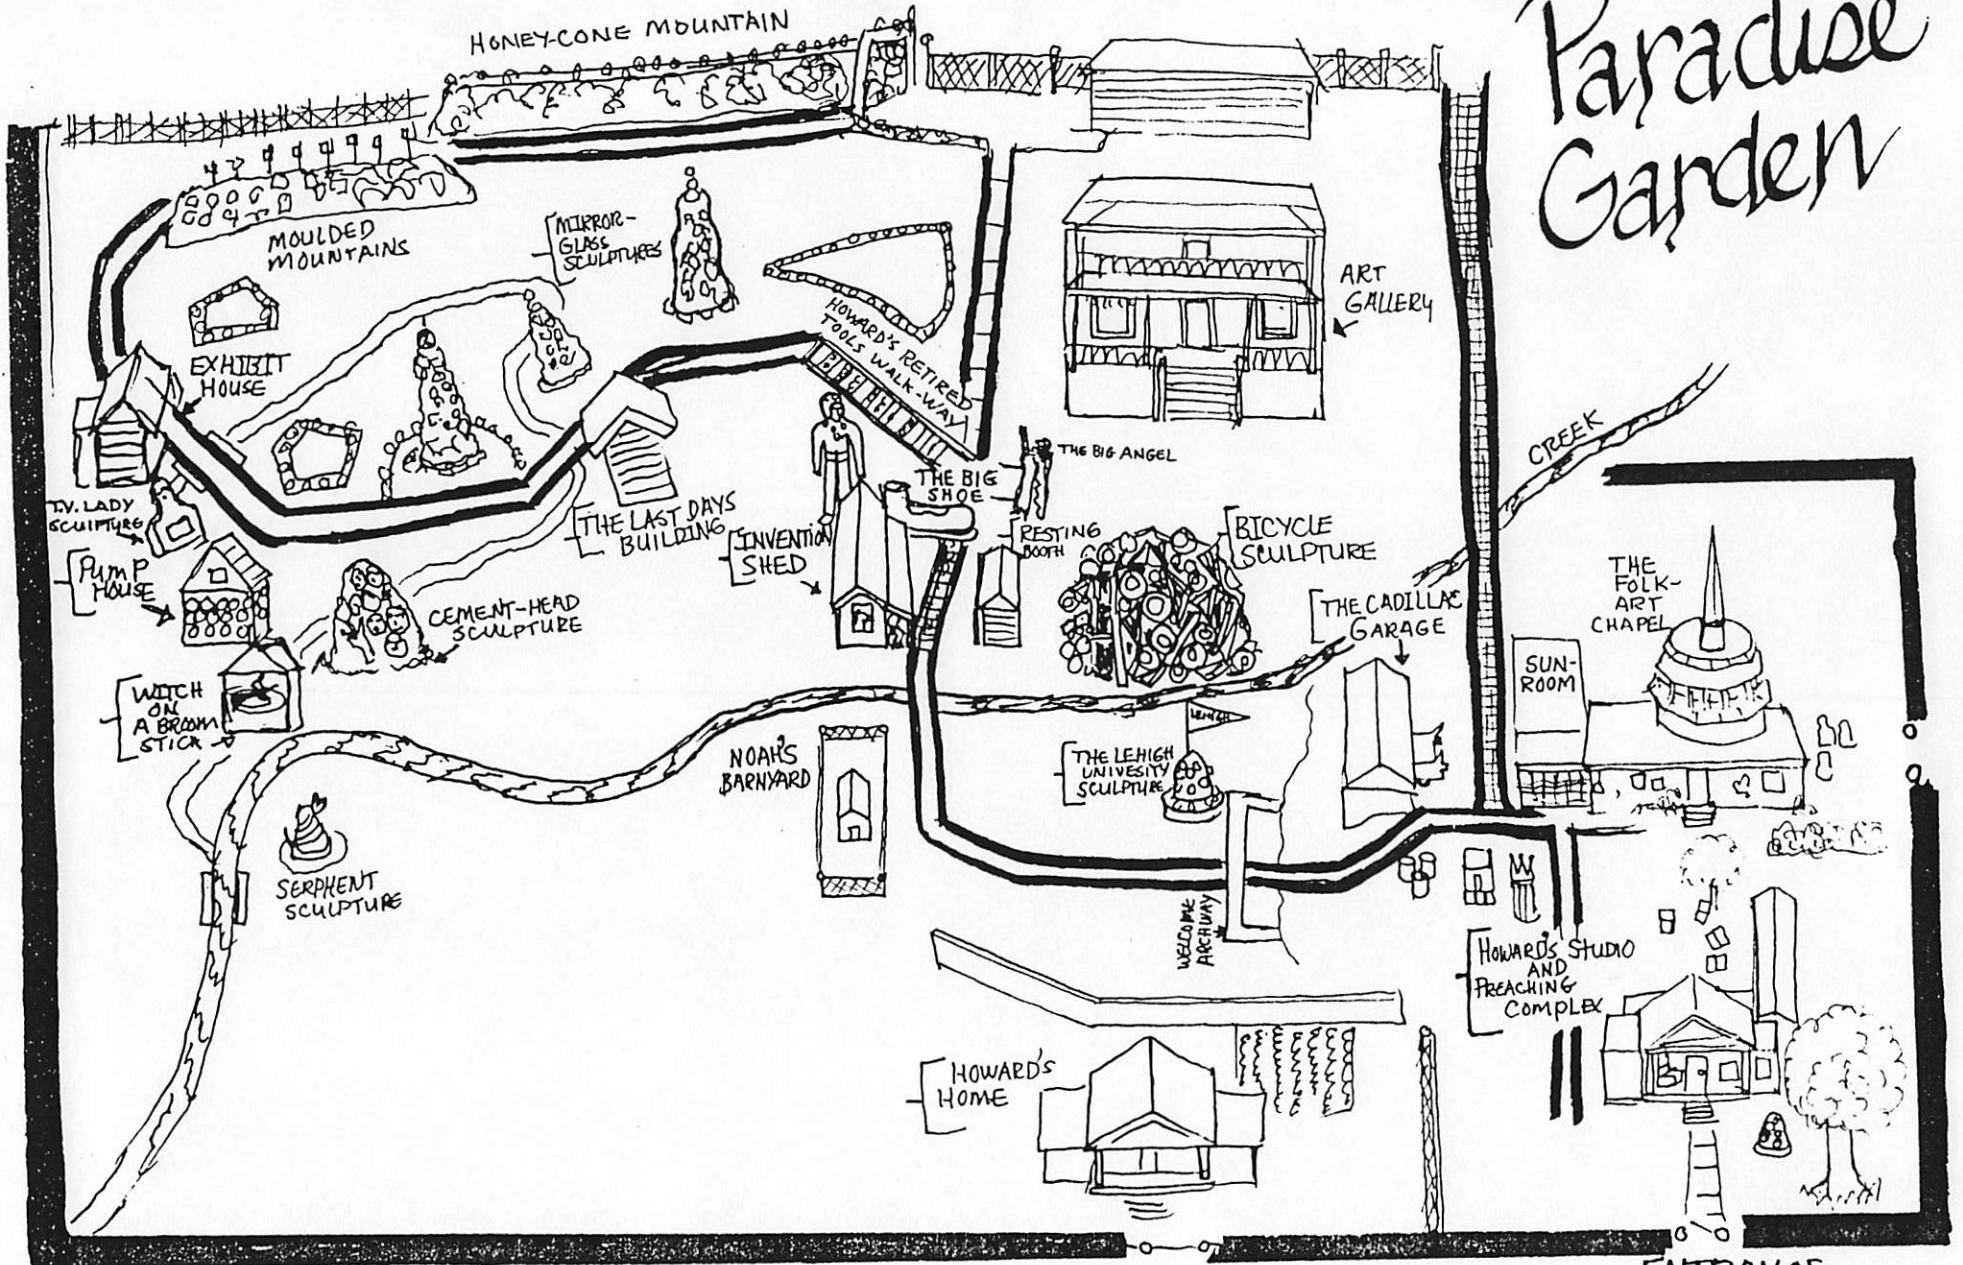 Paradise
Garden
HONEY-CONE MOUNTAIN
MOULDED
MOUNTAINS
MIRROR-
GLASS
SCULPTURES
HOWARD'S RETIRED
TOOLS WALK-WAY
ART
GALLERY
EXHIBIT
HOUSE
CREEK
THE BIG ANGEL
THE BIG
SHOE
T.V. LADY
SCULPTURE
THE LAST DAYS
BUILDING
INVENTION
SHED
RESTING
BOOTH
BICYCLE
SCULPTURE
PUMP
HOUSE
CEMENT-HEAD
SCULPTURE
THE CADILLAC
GARAGE
THE
FOLK-
ART
CHAPEL
SUN-
ROOM
WITCH
ON
A BROOM
STICK
NOAH'S
BARNYARD
LEHIGH
THE LEHIGH
UNIVESITY
SCULPTURE
SERPHENT
SCULPTURE
WELCOME
ARCHWAY
HOWARD'S STUDIO
AND
PREACHING
COMPLEX
HOWARD'S
HOME
ENTRANCE